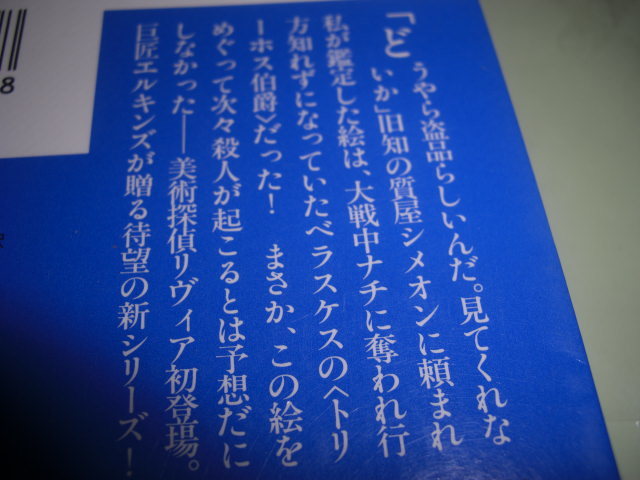 「どうやら盗品らしいんだ。見てくれな
いか」旧知の質屋シメオンに頼まれ
私が鑑定した絵は、大戦中ナチに奪われ行
方知れずになっていたベラスケスの〈トリ
ーホス伯爵〉だった！　まさか、この絵を
めぐって次々殺人が起こるとは予想だに
しなかった──美術探偵リヴィア初登場。
巨匠エルキンズが贈る待望の新シリーズ！
8